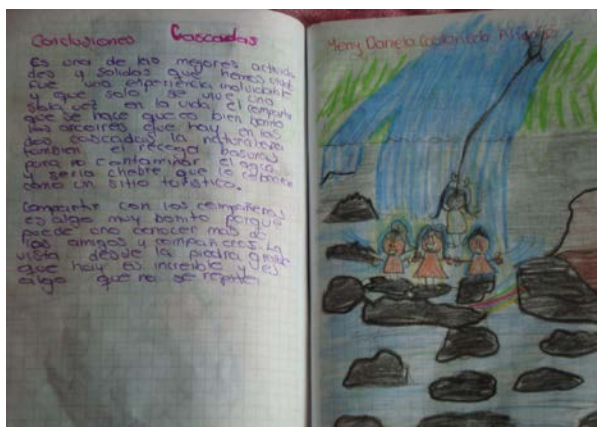 Conclusiones Cascadas
Es una de las mejores activida
des y salidas que hemos
fue una experiencia inolvidable
y que solo se vive una
sola vez en la vida, el compartir
que se hace queco bien bonito
los arcoires que hay en las
dos cascadas, la naturaleza
tambien el recoger basuras
para no contaminar el agua
y seria chebre que la
como un sitio turistico.
Compartir con los compañeros
es algo muy bonito porque
puede uno conocer mas de
los amigos y compañeros. La
vista desde la piedra grande
que hay es increible y es
algo que no se repite
Daniela